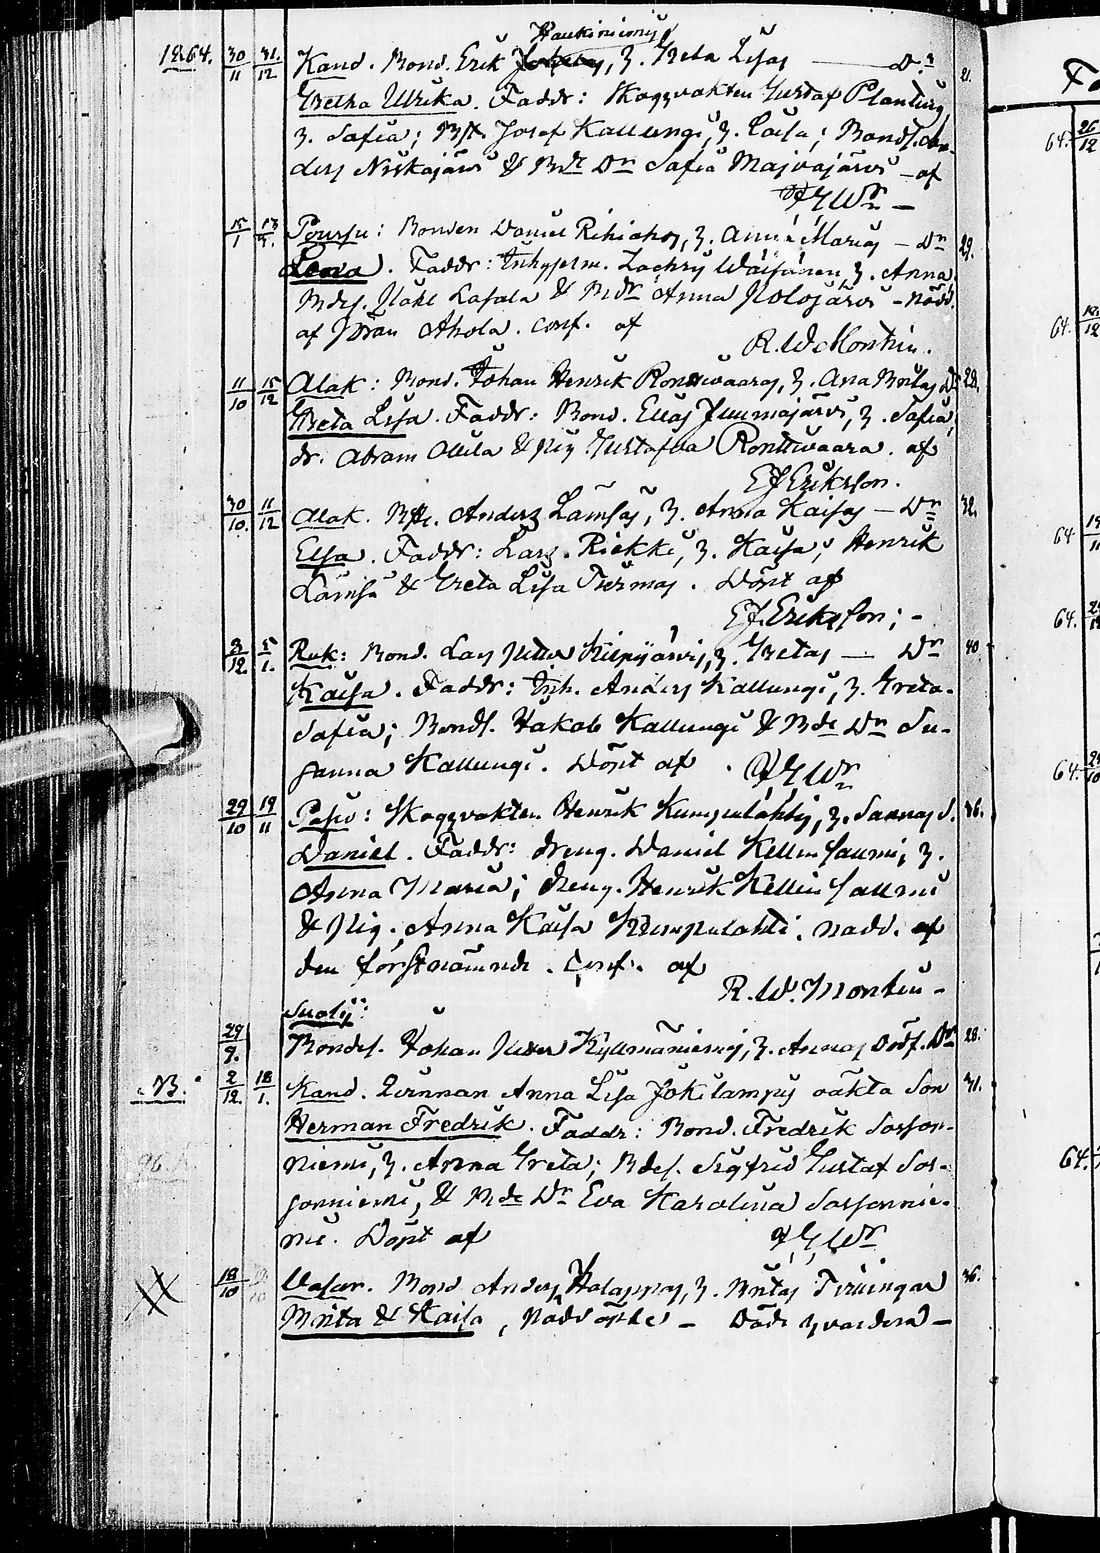 Haukiniemis
1864. 30/11 31./12 Kand. Bond. Erik Johans, h. Greta Lisas — Dr. 21.
Gretha Ulrika. Faddr: Skogsvakten Gustaf Planting,
h. Safia; Bds. Josef Kallungi, h. Caisa; Bonds. An-
ders Niskajärvi & Bde Dr Safia Majvajärvi — af
15/1 Poursu: Bonden Daniel Rihiahos, h. Anna Marias — Dr 29.
Lena. Faddr: Inhysesm. Zachris Wäisänen, h. Anna,
Mdrs. Påhl Lasala & Mdr Anna Nolojärvi — nödd.
af Jöran Ahola. conf. af
R. W. Montin.
11/10 15/12 Alak: Bond. Johan Henrik Rontiwaaras, h. Ana Britas Dr 28.
Greta Lisa. Faddr: Bond. Elias Jumajärvi, h. Safia,
dr. Abram Ollila & pig. Gustafva Rontiwaara. af
E J Eriksson.
30/10. 11/12 Alak. Bds. Anders Lämsäs, h. Anna Kaisas — Dr 32.
Elsa. Faddr: Lars Riekki, h. Kaisa; Henrik
Lämsä & Greta Lisa Tiermas. Döpt af
E J. Eriksson; —
3/12. 5/1. Ruk: Bond. Lars Petter Kilpijärvis, h. Gretas — Dr 40
Kaisa. Faddr: Inh. Anders Kallungi, h. Greta
Safia; Bonds. Jakob Kallungi & Bde Dr Su-
sanna Kallungi. Döpt af
29/10 19/11 Posio: Skogsvakten Henrik Kumpulahtis, h. Sannas S. 36.
Daniel. Faddr: dreng. Daniel Kellinsalmi, h.
Anna Maria; dreng. Henrik Kellinsalmi
& Pig. Anna Kaisa Kumpulahti. nödd. af
den förstnämnde. conf. af
R. W. Montin —
Suolij:
29/9. Bondes. Johan Petter Kyllmäniemis, h. Annas Dödf. Dr 28.
NB. 2/12. 18/1. Kand. Qvinnan Anna Lisa Jokilampis oäkta Son 31.
Herman Fredrik. Faddr: Bond. Fredrik Sarson-
niemi, h. Anna Greta; Bdes. Sigfrid Gustaf Sar-
sonniemi, & Bde Dr Eva Karolina Sarsonnie-
mi. Döpt af
18/10 Bond Anders Halappas, h. Britas Tvillingar 36.
Brita & Kaisa, Nöddöpte — Döde hvardera —
64. 26/12
64.
64
64.
64.
64.